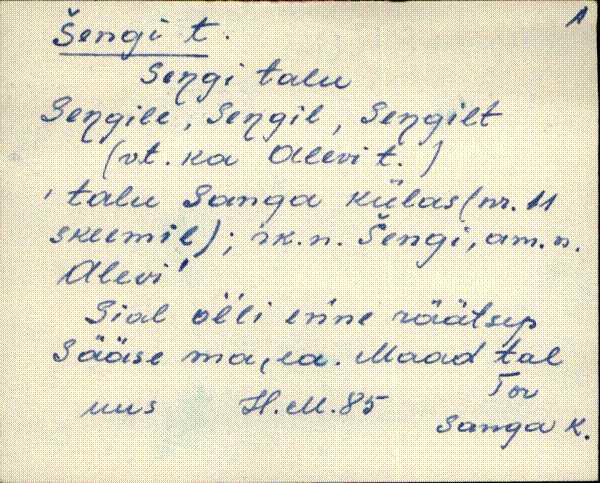 A
Šengi t.
Seŋgi talu
Seŋgile, Seŋgil, Seŋgilt
(vt. ka Alevi t.)
'talu Sanga külas (nr. 11
skeemil); rk.n. Šengi, am.n.
Alevi'
Sial olli enne räätsep
Sääse ma,ea. Maad tal
uus H.M. 85 Tor
Sanga k.